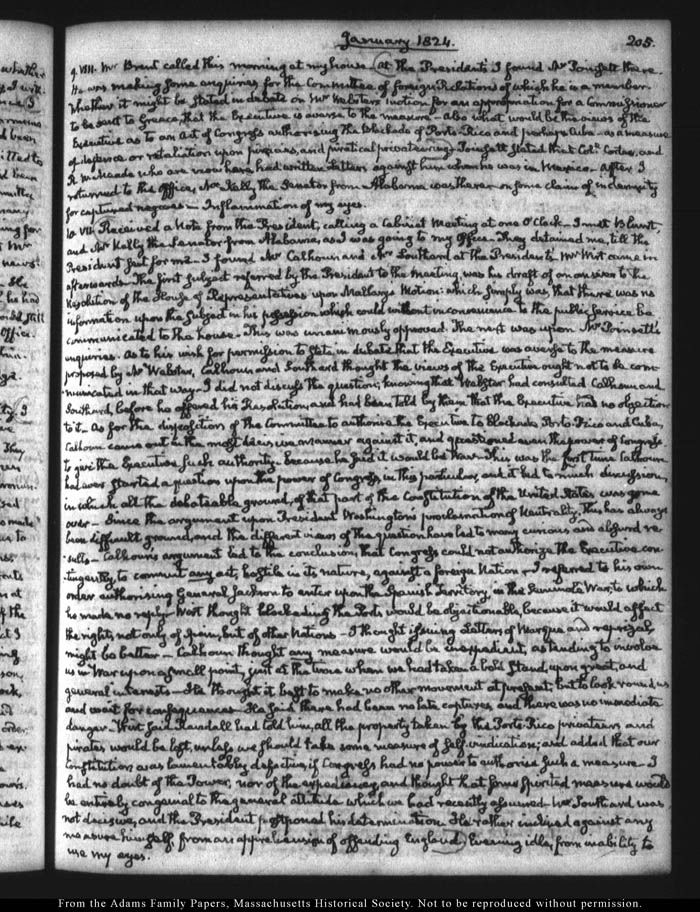 January 1824.
205.
9. VIII. Mr Brent called this morning at my house. At the President's I found Mr Poinsett there.
He was making some enquiries for the Committee of foreign Relations of which he is a member.
Whether it might be stated in debate on Mr Webster's motion for an appropriation for a Commissioner
to be sent to Greece, that the Executive is averse to the measure — also what would be the views of the
Executive as to an act of Congress authorising the blockade of Porto-Rico and perhaps Cuba, as a measure
of defence or retaliation upon piracies, and piratical privateering. Poinsett stated that Coll. Cortes, and
R. McMeade who are now here had written letters against him when he was in Mexico. After I
returned to the Office, Mr Kelly the Senator from Alabama was there on some claim of indemnity
for captured negroes — Inflammation of my eyes.
10. VII. Received a Note from the President, calling a Cabinet Meeting at one O'Clock. I met Blunt,
and Mr Kelly the Senator from Alabama, as I was going to my Office. They detained me, till the
President sent for me. I found Mr Calhoun and Mr Southard at the President's. Mr Wirt came in
afterwards. The first subject referred by the President to the meeting, was his draft of an answer to the
Resolution of the House of Representatives upon Mallary's Motion: which simply was, that there was no
information upon the subject in his possession which could without inconvenience to the public service be
communicated to the house. This was unanimously approved. The next was upon Mr Poinsett's
enquiries. As to his wish for permission to state in debate that the Executive was averse to the measure
proposed by Mr Webster, Calhoun and Southard thought the views of the Executive ought not to be com-
municated in that way. I did not discuss the question; knowing that Webster had consulted Calhoun and
Southard, before he offered his Resolution, and had been told by them that the Executive had no objection
to it. As for the disposition of the Committee to authorise the Executive to blockade Porto-Rico and Cuba,
Calhoun came out in the most decisive manner against it, and questioned even the power of Congress,
to give the Executive such authority. Because he said it would be War. This was the first time Calhoun
had ever started a question upon the power of Congress, in this particular, and it led to much discussion,
in which all the debateable ground, of that part of the Constitution of the United States was gone
over — Since the argument upon President Washington's proclamation of Neutrality, this has always
been difficult ground, and the different views of the question have led to many curious and absurd re-
-sults — Calhoun's argument led to the conclusion, that Congress could not authorize the Executive con-
tingently, to commit any act, hostile in its nature, against a foreign Nation — I referred to his own
order authorising General Jackson to enter upon the Spanish Territory, in the Seminole War, to which
he made no reply — Wirt thought blockading the Ports would be objectionable, because it would affect
the rights, not only of Spain, but of other Nations — I thought issuing Letters of Marque and reprisal,
might be better — Calhoun thought any measure would be inexpedient, as tending to involve
us in War upon a small point, just at the time when we had taken a bold stand, upon great, and
general interests — He thought it best to make no other movement at present, but to look round us
and wait for consequences — He said there had been no late captures and there was no immediate
danger — Wirt said Randall had told him, all the property taken by the Porto-Rico privateers and
pirates would be lost, unless we should take some measure of self-vindication; and added that our
Constitution was lamentably defective, if Congress had no power to authorise such a measure — I
had no doubt of the Power, nor of the expediency, and thought that some spirited measure would
be entirely congenial to the general attitude which we had recently assumed. Mr Southard was
not decisive, and the President postponed his determination. He rather inclined against any
measure himself, from an apprehension of offending England. Evening idle, from inability to
use my eyes.
From the Adams Family Papers, Massachusetts Historical Society. Not to be reproduced without permission.